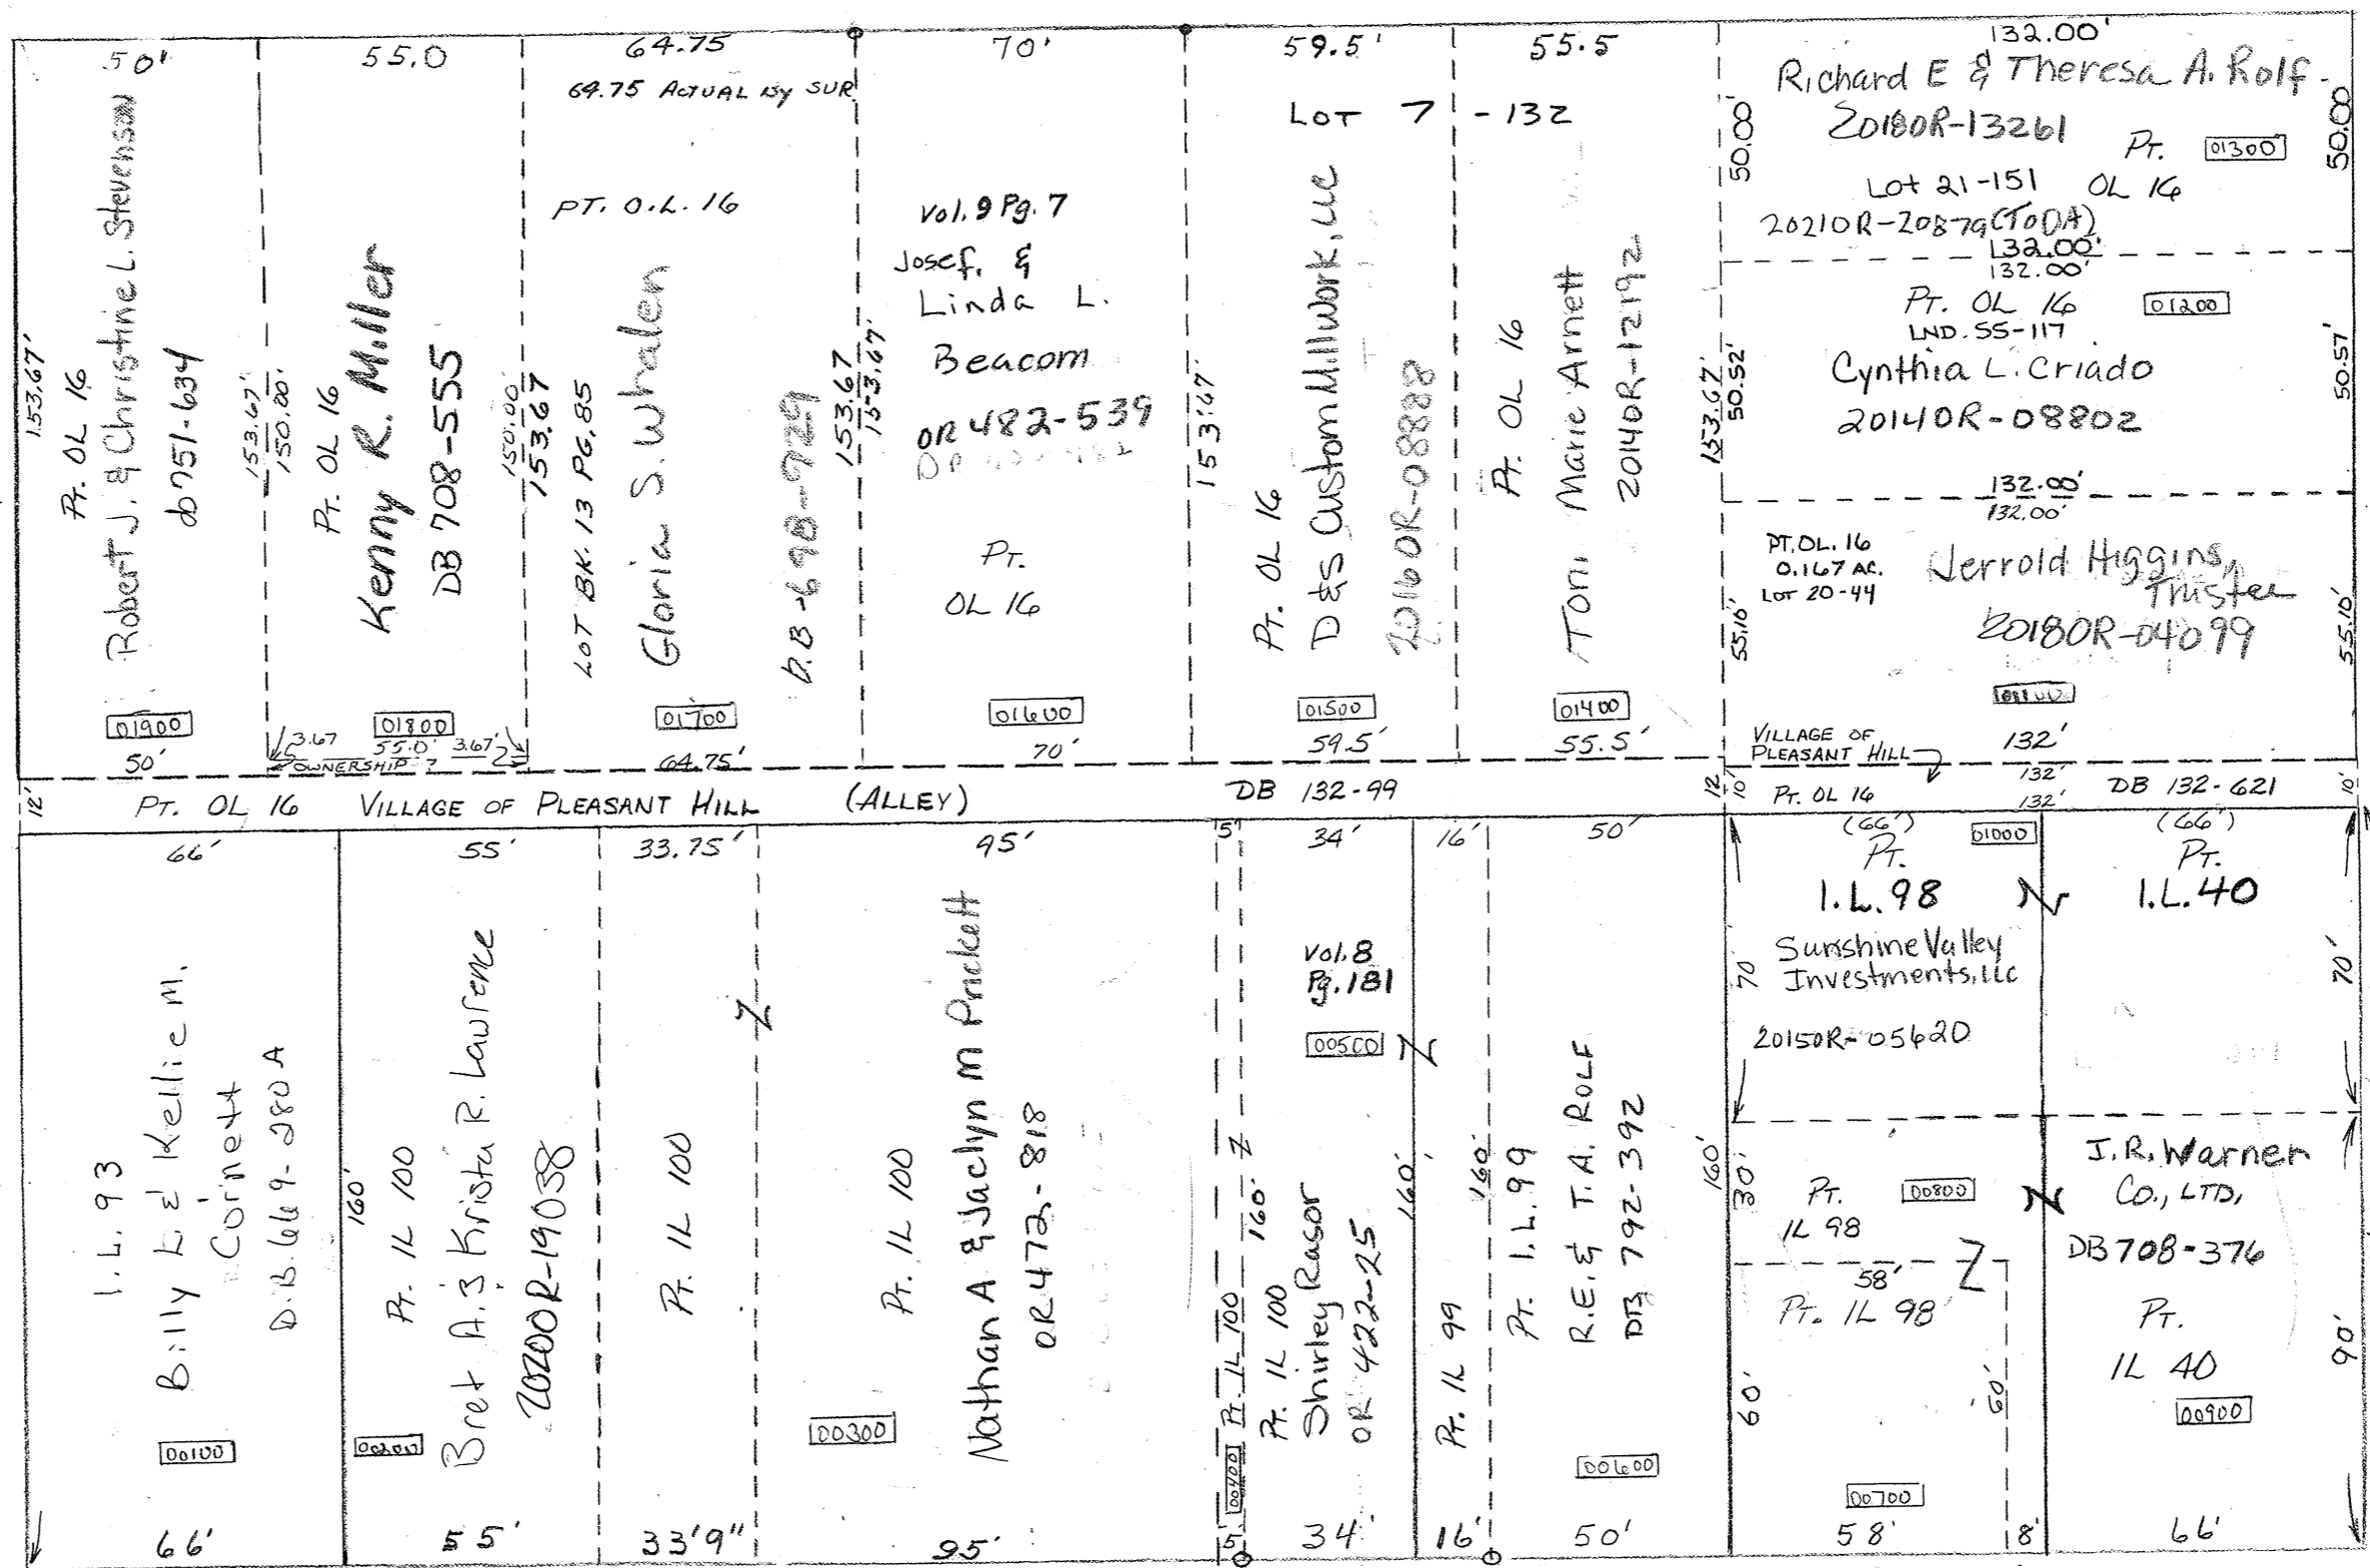 50'
153.67'
PT. OL 16
Robert J. & Christine L. Stevenson
db 751-634
01900
50'
153.67'
150.00'
55.0
PT. OL 16
Kenny R. Miller
DB 708-555
01800
3.67
55.0'
3.67'
OWNERSHIP ?
150.00'
153.67
64.75
64.75 ACTUAL By SUR.
PT. O.L. 16
LOT BK. 13 PG. 85
Gloria S. Whalen
D.B-698-929
01700
64.75'
153.67
153.67'
70'
Vol. 9 Pg. 7
Josef. &
Linda L.
Beacom
OR 482-539
PT.
OL 16
01600
70'
153.67'
59.5'
55.5
LOT 7 - 132
PT. OL 16
D & S Custom Millwork, LLC
2016OR-08888
01500
59.5'
PT. OL 16
Toni Marie Arnett
2014OR-12192
01400
55.5'
153.67'
132.00'
Richard E & Theresa A. Rolf
2018OR-13261
PT. 01300
Lot 21-151 OL 16
2021OR-20879 (TODA)
50.00'
50.00
132.00'
132.00'
PT. OL 16 01200
LND. 55-117
Cynthia L. Criado
2014OR-08802
50.52'
50.57'
132.00'
132.00'
PT. OL. 16
0.167 AC.
LOT 20-44
Jerrold Higgins,
Trustee
2018OR-04099
55.10'
55.10'
VILLAGE OF
PLEASANT HILL
132'
12'
PT. OL 16 VILLAGE OF PLEASANT HILL (ALLEY) DB 132-99
12
10'
132'
PT. OL 16
132'
DB 132-621
10'
66'
I.L. 93
Billy L. & Kellie M.
Cornett
D.B. 669-280A
00100
66'
160'
55'
PT. IL 100
Bret A. & Krista R. Lawrence
2020OR-19038
00200
55'
33.75'
PT. IL 100
33'9"
95'
PT. IL 100
Nathan A & Jaclyn M Prickett
OR 472-818
00300
95'
5'
PT. IL 100
00400
5'
160'
34'
Vol. 8
Pg. 181
00500
PT. IL 100
Shirley Rasor
OR 422-25
34'
160'
16'
PT. IL 99
16'
160'
50'
PT. I.L. 99
R.E. & T.A. ROLF
DB 792-392
00600
50'
160'
(66')
01000
PT.
I.L. 98
Sunshine Valley
Investments, LLC
2015OR-05620
70
(66')
PT.
I.L. 40
70'
30'
PT.
IL 98
00800
58'
PT. IL 98
60'
60'
00700
58'
8'
J.R. Warner
Co., LTD,
DB 708-376
PT.
IL 40
00900
90'
66'